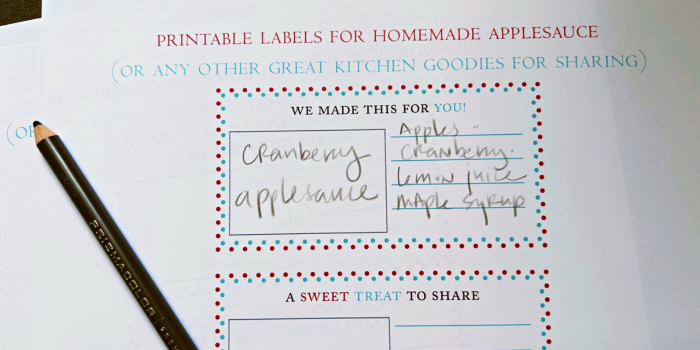 PRINTABLE LABELS FOR HOMEMADE APPLESAUCE
(OR ANY OTHER GREAT KITCHEN GOODIES FOR SHARING)
(OR
WE MADE THIS FOR YOU!
Cranberry
applesauce
Apples -
Cranberry.
lemon juice
MAple Syrup
PRISMACOLOR
A SWEET TREAT TO SHARE